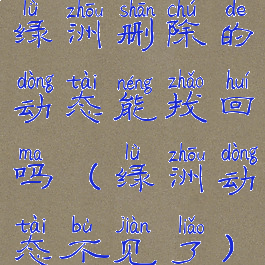 lǜ zhōu shān chú de
绿洲删除的
dòng tài néng zhǎo huí
动态能找回
ma lǜ zhōu dòng
吗，（绿洲动
tài bú jiàn liǎo
态不见了）